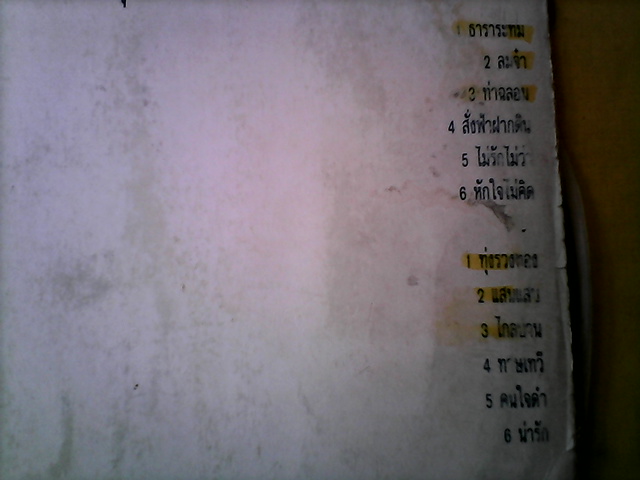 1 ธาราระทม
2 ลมจ๋า
3 ท่าฉลอม
4 สั่งฟ้าฝากดิน
5 ไม่รักไม่ว่า
6 หักใจไม่คิด
1 ทุ่งรวงทอง
2 แสนแสบ
3 ไกลบ้าน
4 เทวี
5 คนใจดำ
6 น่ารัก